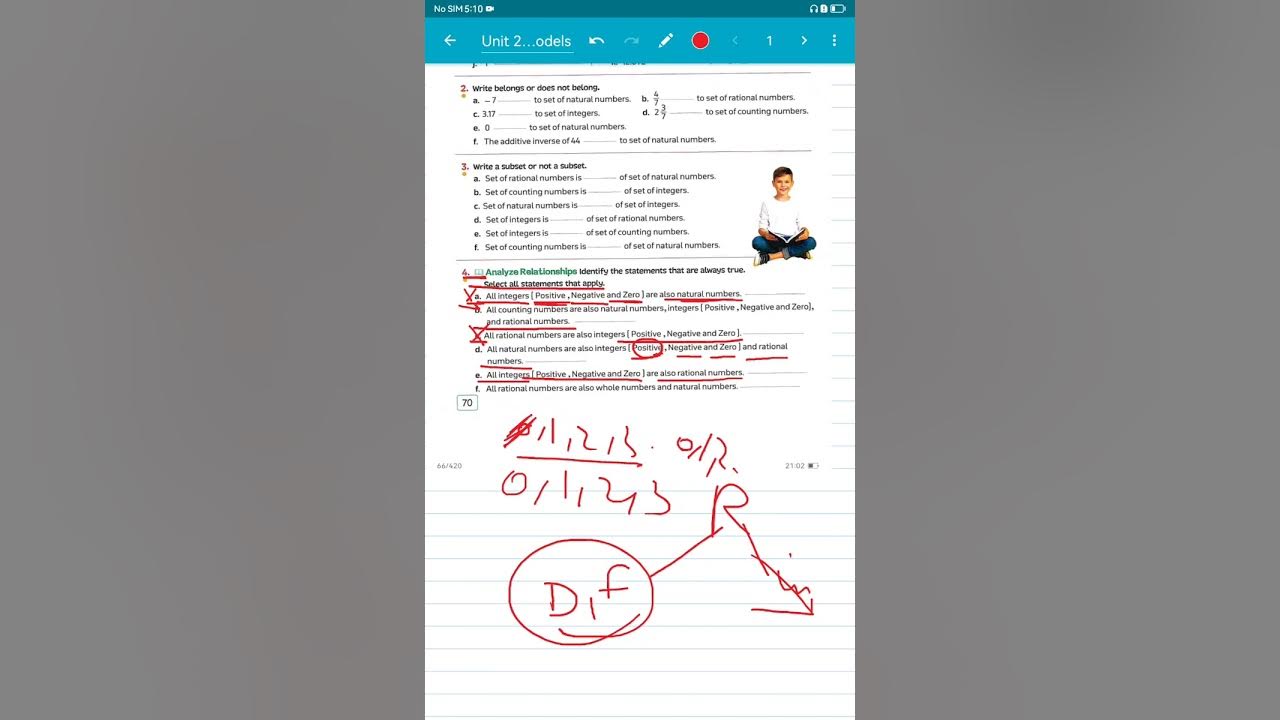 No SIM 5:10
Unit 2...odels
1
2. Write belongs or does not belong.
a. −7 ________ to set of natural numbers. b. 4/7 ________ to set of rational numbers.
c. 3.17 ________ to set of integers. d. 2 3/7 ________ to set of counting numbers.
e. 0 ________ to set of natural numbers.
f. The additive inverse of 44 ________ to set of natural numbers.
3. Write a subset or not a subset.
a. Set of rational numbers is ________ of set of natural numbers.
b. Set of counting numbers is ________ of set of integers.
c. Set of natural numbers is ________ of set of integers.
d. Set of integers is ________ of set of rational numbers.
e. Set of integers is ________ of set of counting numbers.
f. Set of counting numbers is ________ of set of natural numbers.
4. Analyze Relationships Identify the statements that are always true.
Select all statements that apply.
a. All integers [ Positive , Negative and Zero ] are also natural numbers. ________
b. All counting numbers are also natural numbers, integers [ Positive , Negative and Zero],
and rational numbers. ________
All rational numbers are also integers [ Positive , Negative and Zero ]. ________
d. All natural numbers are also integers [ Positive , Negative and Zero ] and rational
numbers. ________
e. All integers [ Positive , Negative and Zero ] are also rational numbers. ________
f. All rational numbers are also whole numbers and natural numbers. ________
70
,1,2,3. 0,1,2.
66/420 21:02
0,1,2,3
R
D,f